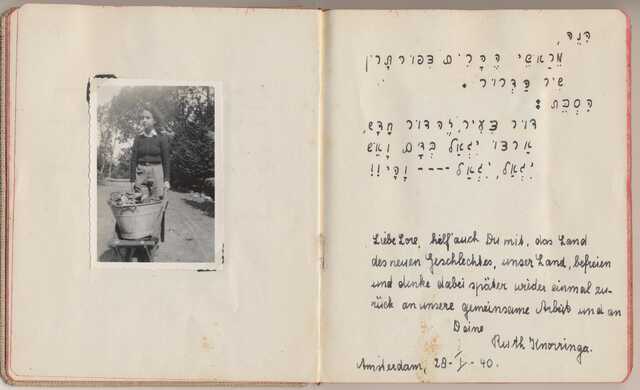 הִנֵּה,
מֵרָאשֵׁי הֶהָרִים צִפּוֹר תָּרֹן
שִׁיר הַדְּרוֹר.
הַסְכֵּת:
דּוֹר צָעִיר, זֶה דּוֹר חָדָשׁ,
אַרְצוֹ יִגְאַל בְּדָם וָאֵשׁ
יִגְאַל, יִגְאַל ----
Liebe Lore, helf' auch Du mit, das Land
des neuen Geschlechtes, unser Land, befreien
und denke dabei später wieder einmal zu-
rück an unsere gemeinsame Arbeit und an
Deine
Ruth Knorringa.
Amsterdam, 28- - 40.